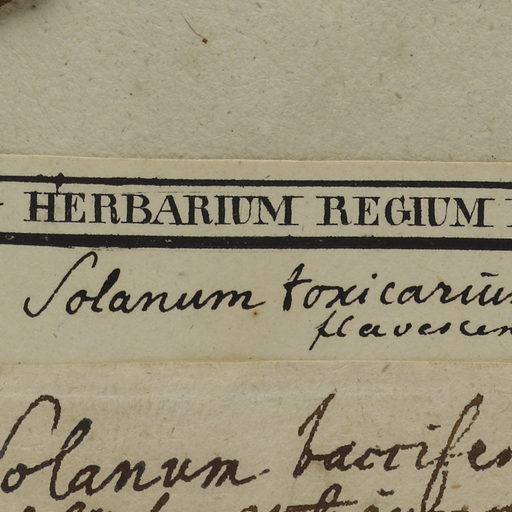 HERBARIUM REGIUM
Solanum toxicariū
flavescen
Solanum baccifen